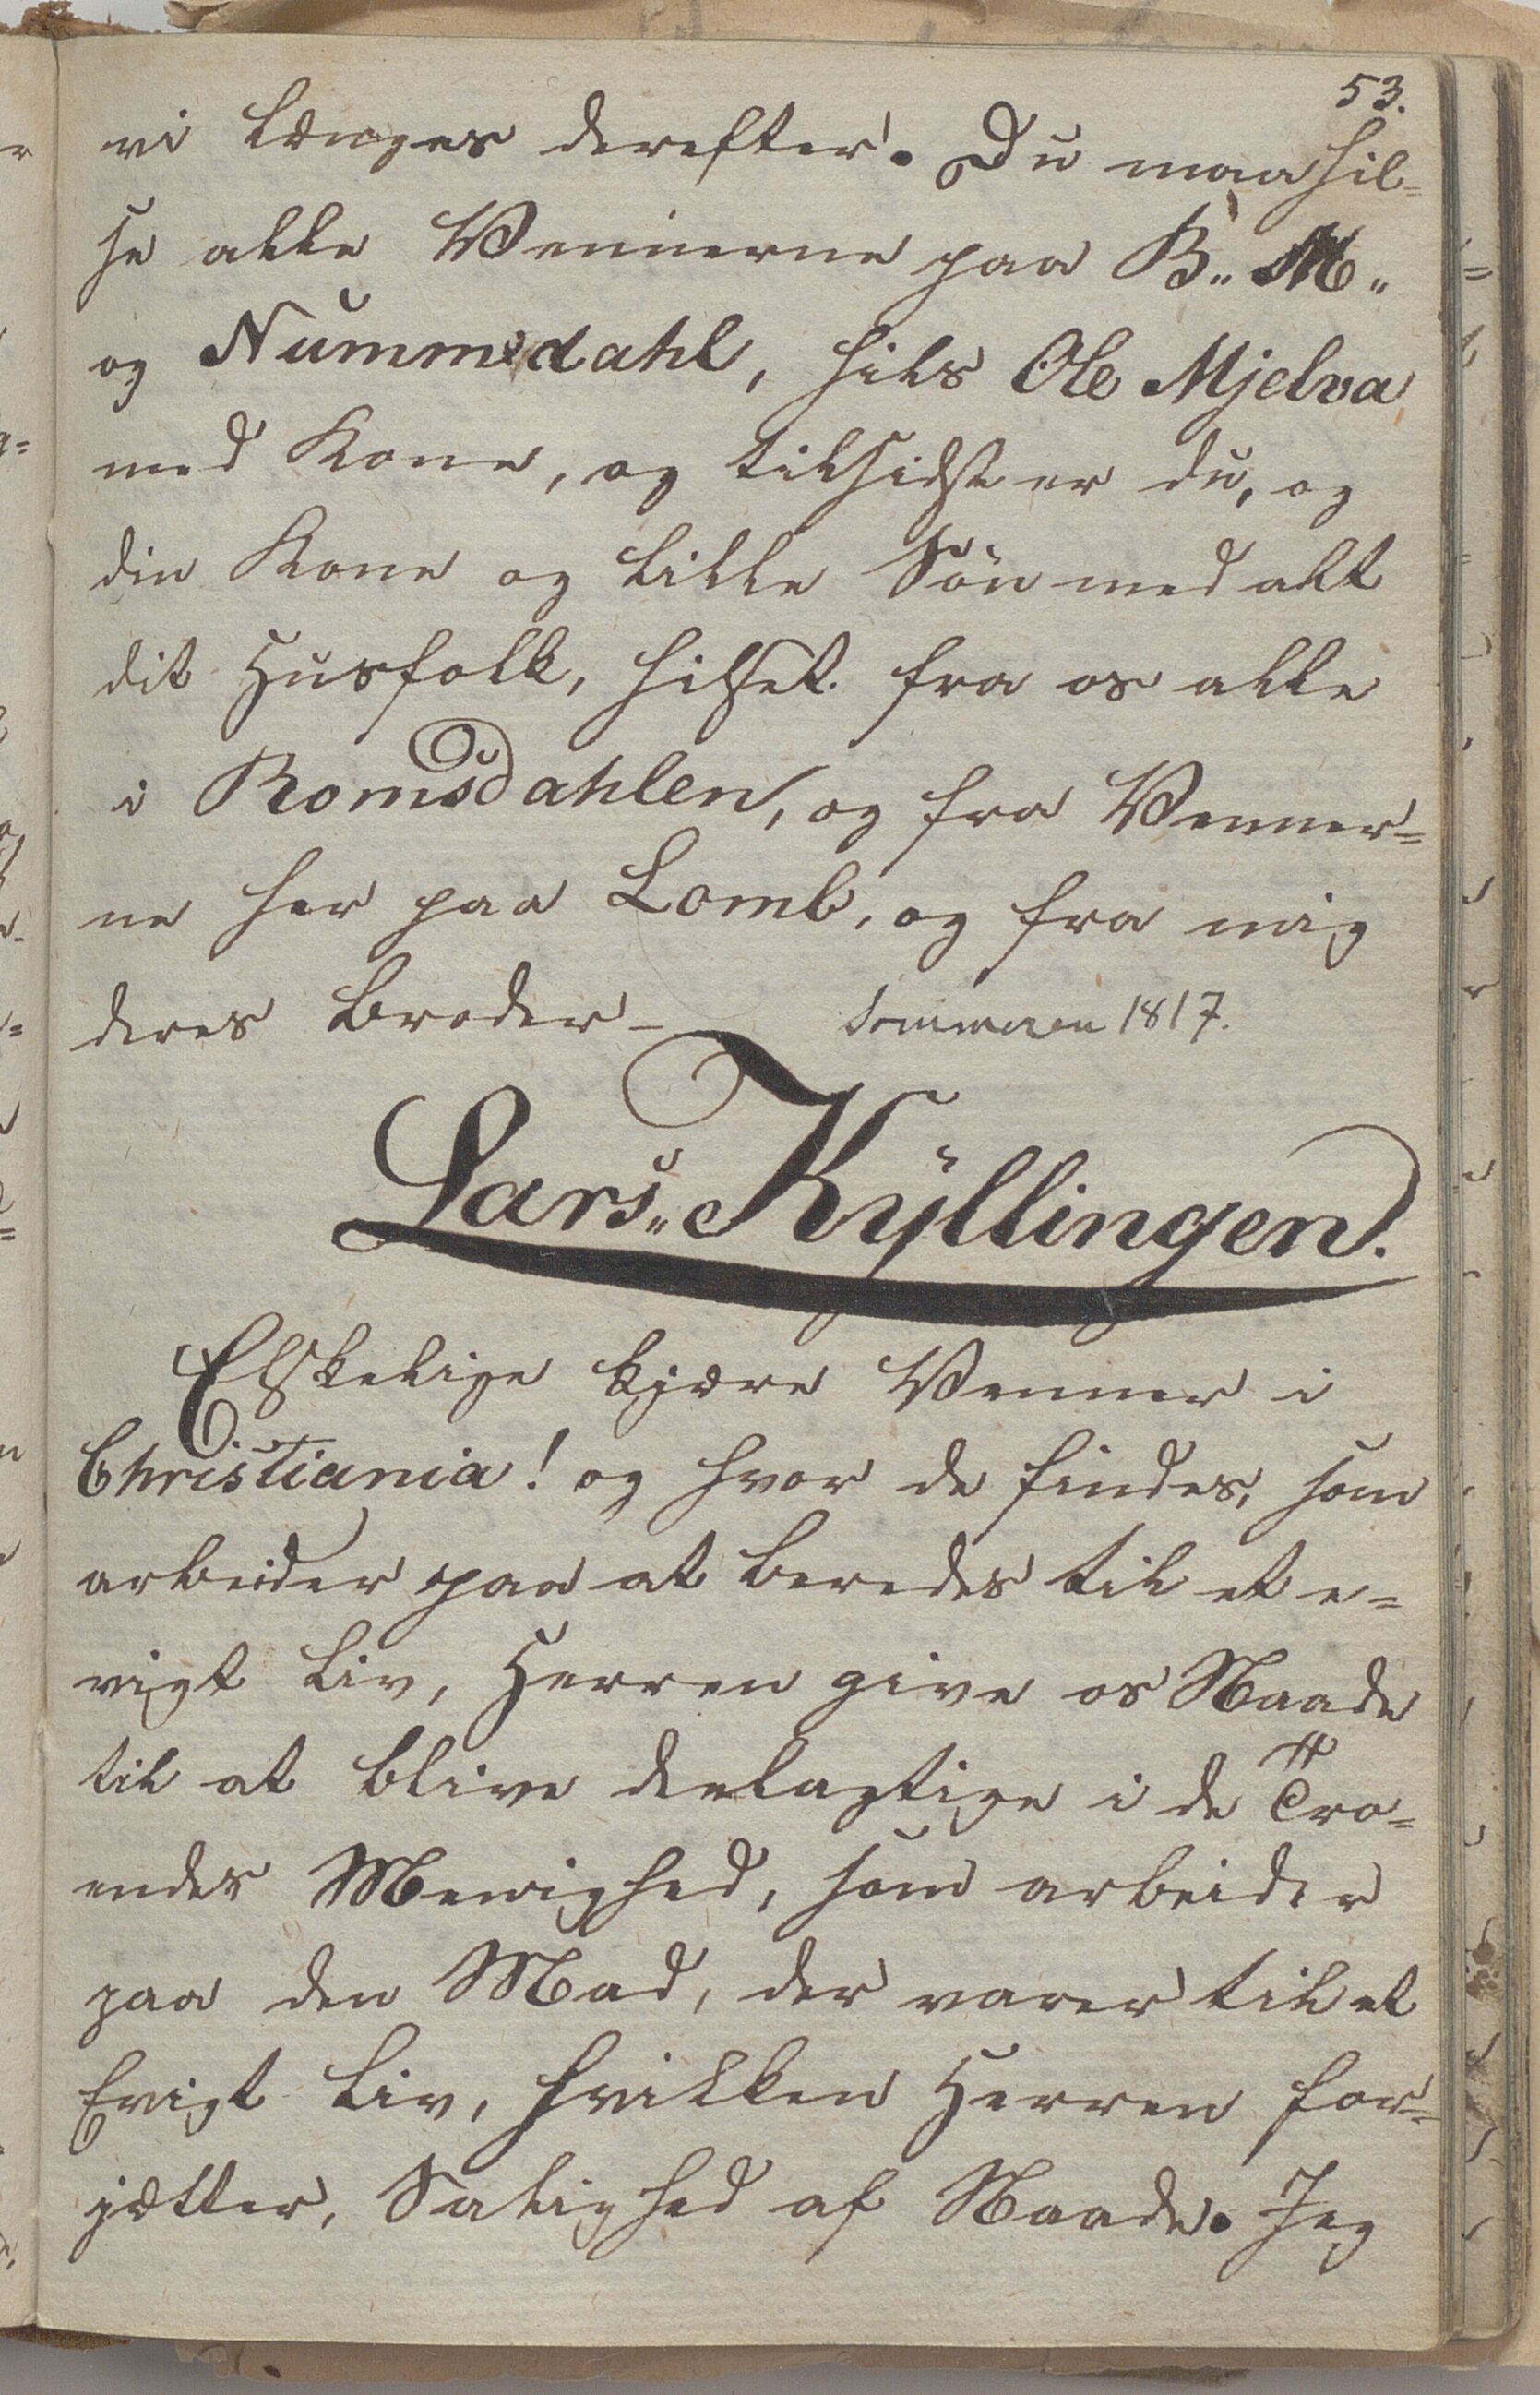 53.
vi længes derefter. Du maa hil=
se alle Vennerne paa B„ M„
og Nummedahl, hils Ole Mjelva
med Kone, og tilsidst er du, og
din Kone og lille Sön med alt
dit Huusfolk, hilset fra os alle
i Romsdahlen, og fra Venner=
ne her paa Lomb, og fra mig
deres Broder –
Sommeren 1817.
Lars„ Kÿllingen.
Elskelige kjære Venner i
Christiania! og hvor de findes, som
arbeider paa at beredes til et e=
vigt Liv, Herren give os Naade
til at blive deelagtige i de Tro=
endes Menighed, som arbeider
paa den Mad, der varer til et
Evigt Liv, hvilken Herren for=
jætter, Salighed af Naade. Jeg